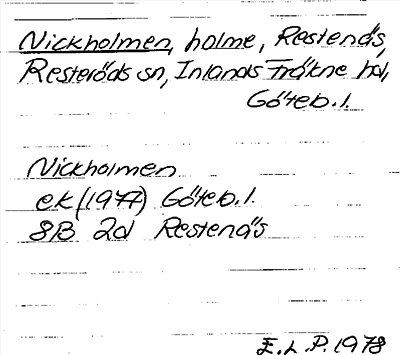 Nickholmen, holme, Restenäs,
Resteröds sn, Inlands Fräkne hd,
Göteb. l.
Nickholmen
ek (1977) Göteb. l.
8B 2d Restenäs
E. L. P. 1978